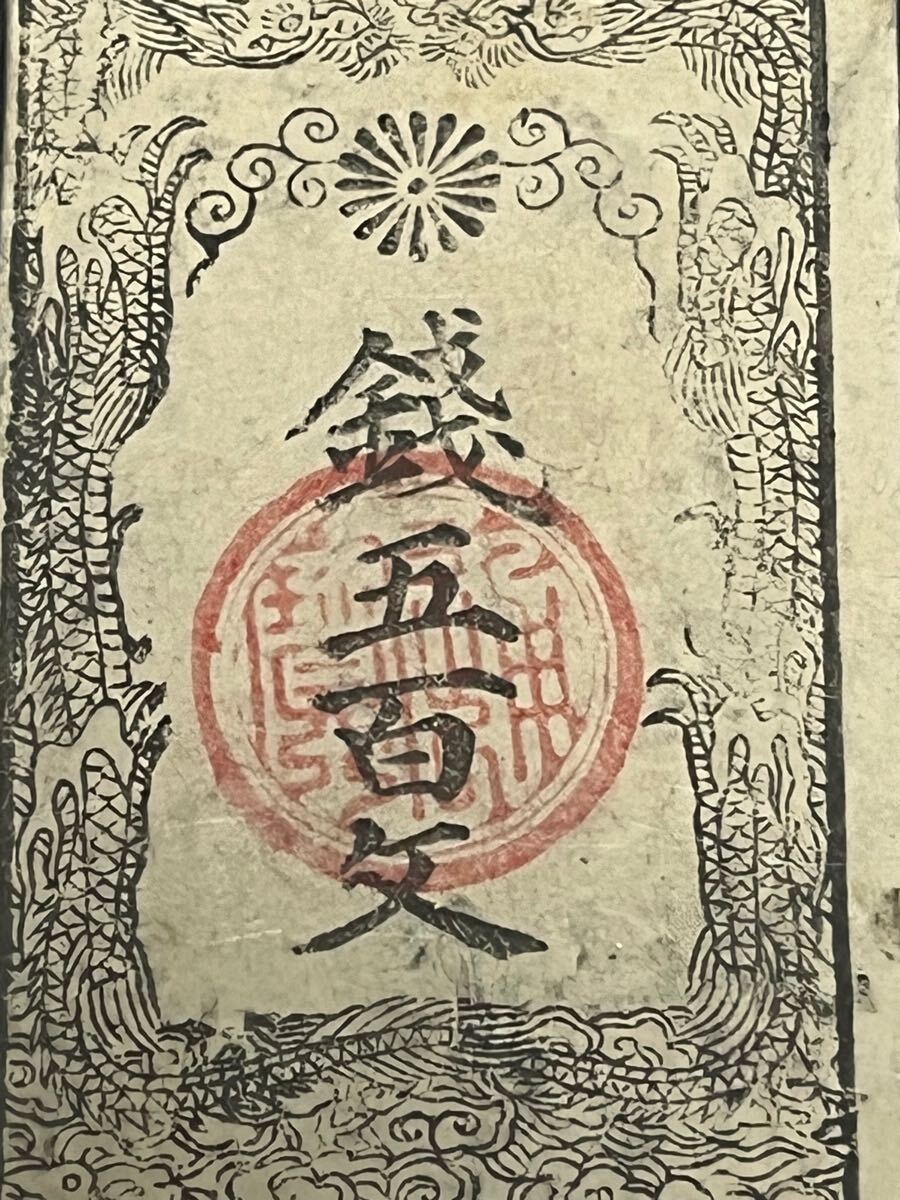 錢五百文